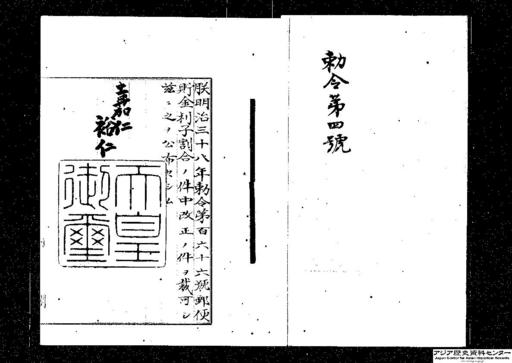 勅令第四號
朕明治三十八年勅令第百六十六號郵便
貯金利子割合ノ件中改正ノ件ヲ裁可シ
茲ニ之ヲ公布セシム
嘉仁
裕仁
天皇
御璽
アジア歴史資料センター
Japan Center for Asian Historical Records